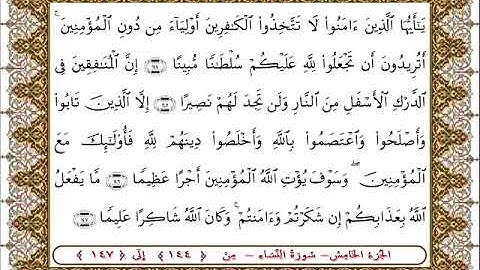 يَـٰٓأَيُّهَا ٱلَّذِينَ ءَامَنُوا۟ لَا تَتَّخِذُوا۟ ٱلْكَـٰفِرِينَ أَوْلِيَآءَ مِن دُونِ ٱلْمُؤْمِنِينَ ۚ
أَتُرِيدُونَ أَن تَجْعَلُوا۟ لِلَّهِ عَلَيْكُمْ سُلْطَـٰنًا مُّبِينًا إِنَّ ٱلْمُنَـٰفِقِينَ فِى
ٱلدَّرْكِ ٱلْأَسْفَلِ مِنَ ٱلنَّارِ وَلَن تَجِدَ لَهُمْ نَصِيرًا إِلَّا ٱلَّذِينَ تَابُوا۟
وَأَصْلَحُوا۟ وَٱعْتَصَمُوا۟ بِٱللَّهِ وَأَخْلَصُوا۟ دِينَهُمْ لِلَّهِ فَأُو۟لَـٰٓئِكَ مَعَ
ٱلْمُؤْمِنِينَ ۖ وَسَوْفَ يُؤْتِ ٱللَّهُ ٱلْمُؤْمِنِينَ أَجْرًا عَظِيمًا مَّا يَفْعَلُ
ٱللَّهُ بِعَذَابِكُمْ إِن شَكَرْتُمْ وَءَامَنتُمْ ۚ وَكَانَ ٱللَّهُ شَاكِرًا عَلِيمًا
الجزء الخامس - سورة النساء - من ﴿ ١٤٤ ﴾ إلى ﴿ ١٤٧ ﴾